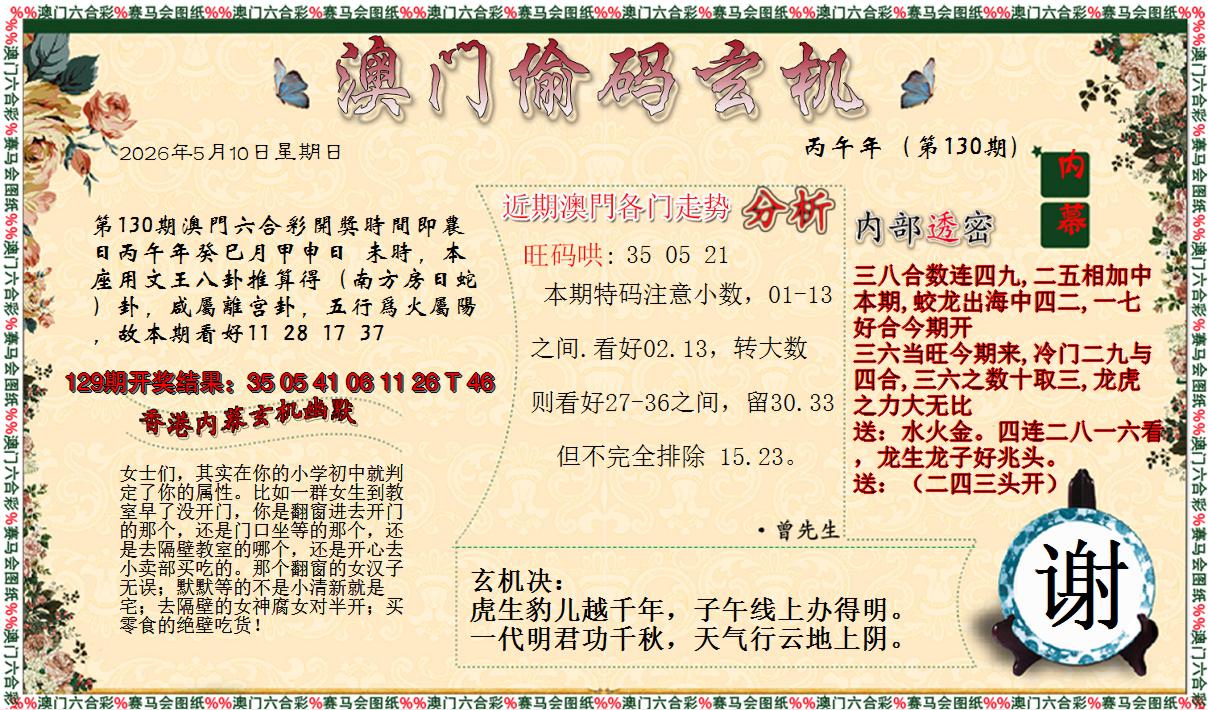 %%澳门六合彩%赛马会图纸%%澳门六合彩%赛马会图纸%%澳门六合彩%赛马会图纸%%澳门六合彩%赛马会图纸%%澳门六合彩%赛马会图纸%%澳门六合彩%赛马会图纸%%
澳门偷码玄机
2026年5月10日星期日
丙午年（第130期）
内幕
第130期澳門六合彩開獎時間即農
日丙午年癸巳月甲申日 未時，本
座用文王八卦推算得（南方房日蛇
）卦，咸屬離宫卦，五行爲火屬陽
，故本期看好11 28 17 37
129期开奖结果：35 05 41 06 11 26 T 46
香港内幕玄机幽默
女士们，其实在你的小学初中就判
定了你的属性。比如一群女生到教
室早了没开门，你是翻窗进去开门
的那个，还是门口坐等的那个，还
是去隔壁教室的哪个，还是开心去
小卖部买吃的。那个翻窗的女汉子
无误；默默等的不是小清新就是
宅；去隔壁的女神腐女对半开；买
零食的绝壁吃货！
近期澳門各门走势 分析
旺码哄: 35 05 21
本期特码注意小数，01-13
之间.看好02.13，转大数
则看好27-36之间，留30.33
但不完全排除 15.23。
·曾先生
内部透密
三八合数连四九,二五相加中
本期,蛟龙出海中四二,一七
好合今期开
三六当旺今期来,冷门二九与
四合,三六之数十取三,龙虎
之力大无比
送：水火金。四连二八一六看
，龙生龙子好兆头。
送：（二四三头开）
玄机决：
虎生豹儿越千年，子午线上办得明。
一代明君功千秋，天气行云地上阴。
谢
%%澳门六合彩%赛马会图纸%%澳门六合彩%赛马会图纸%%澳门六合彩%赛马会图纸%%澳门六合彩%赛马会图纸%%澳门六合彩%赛马会图纸%%澳门六合彩%赛马会图纸%%